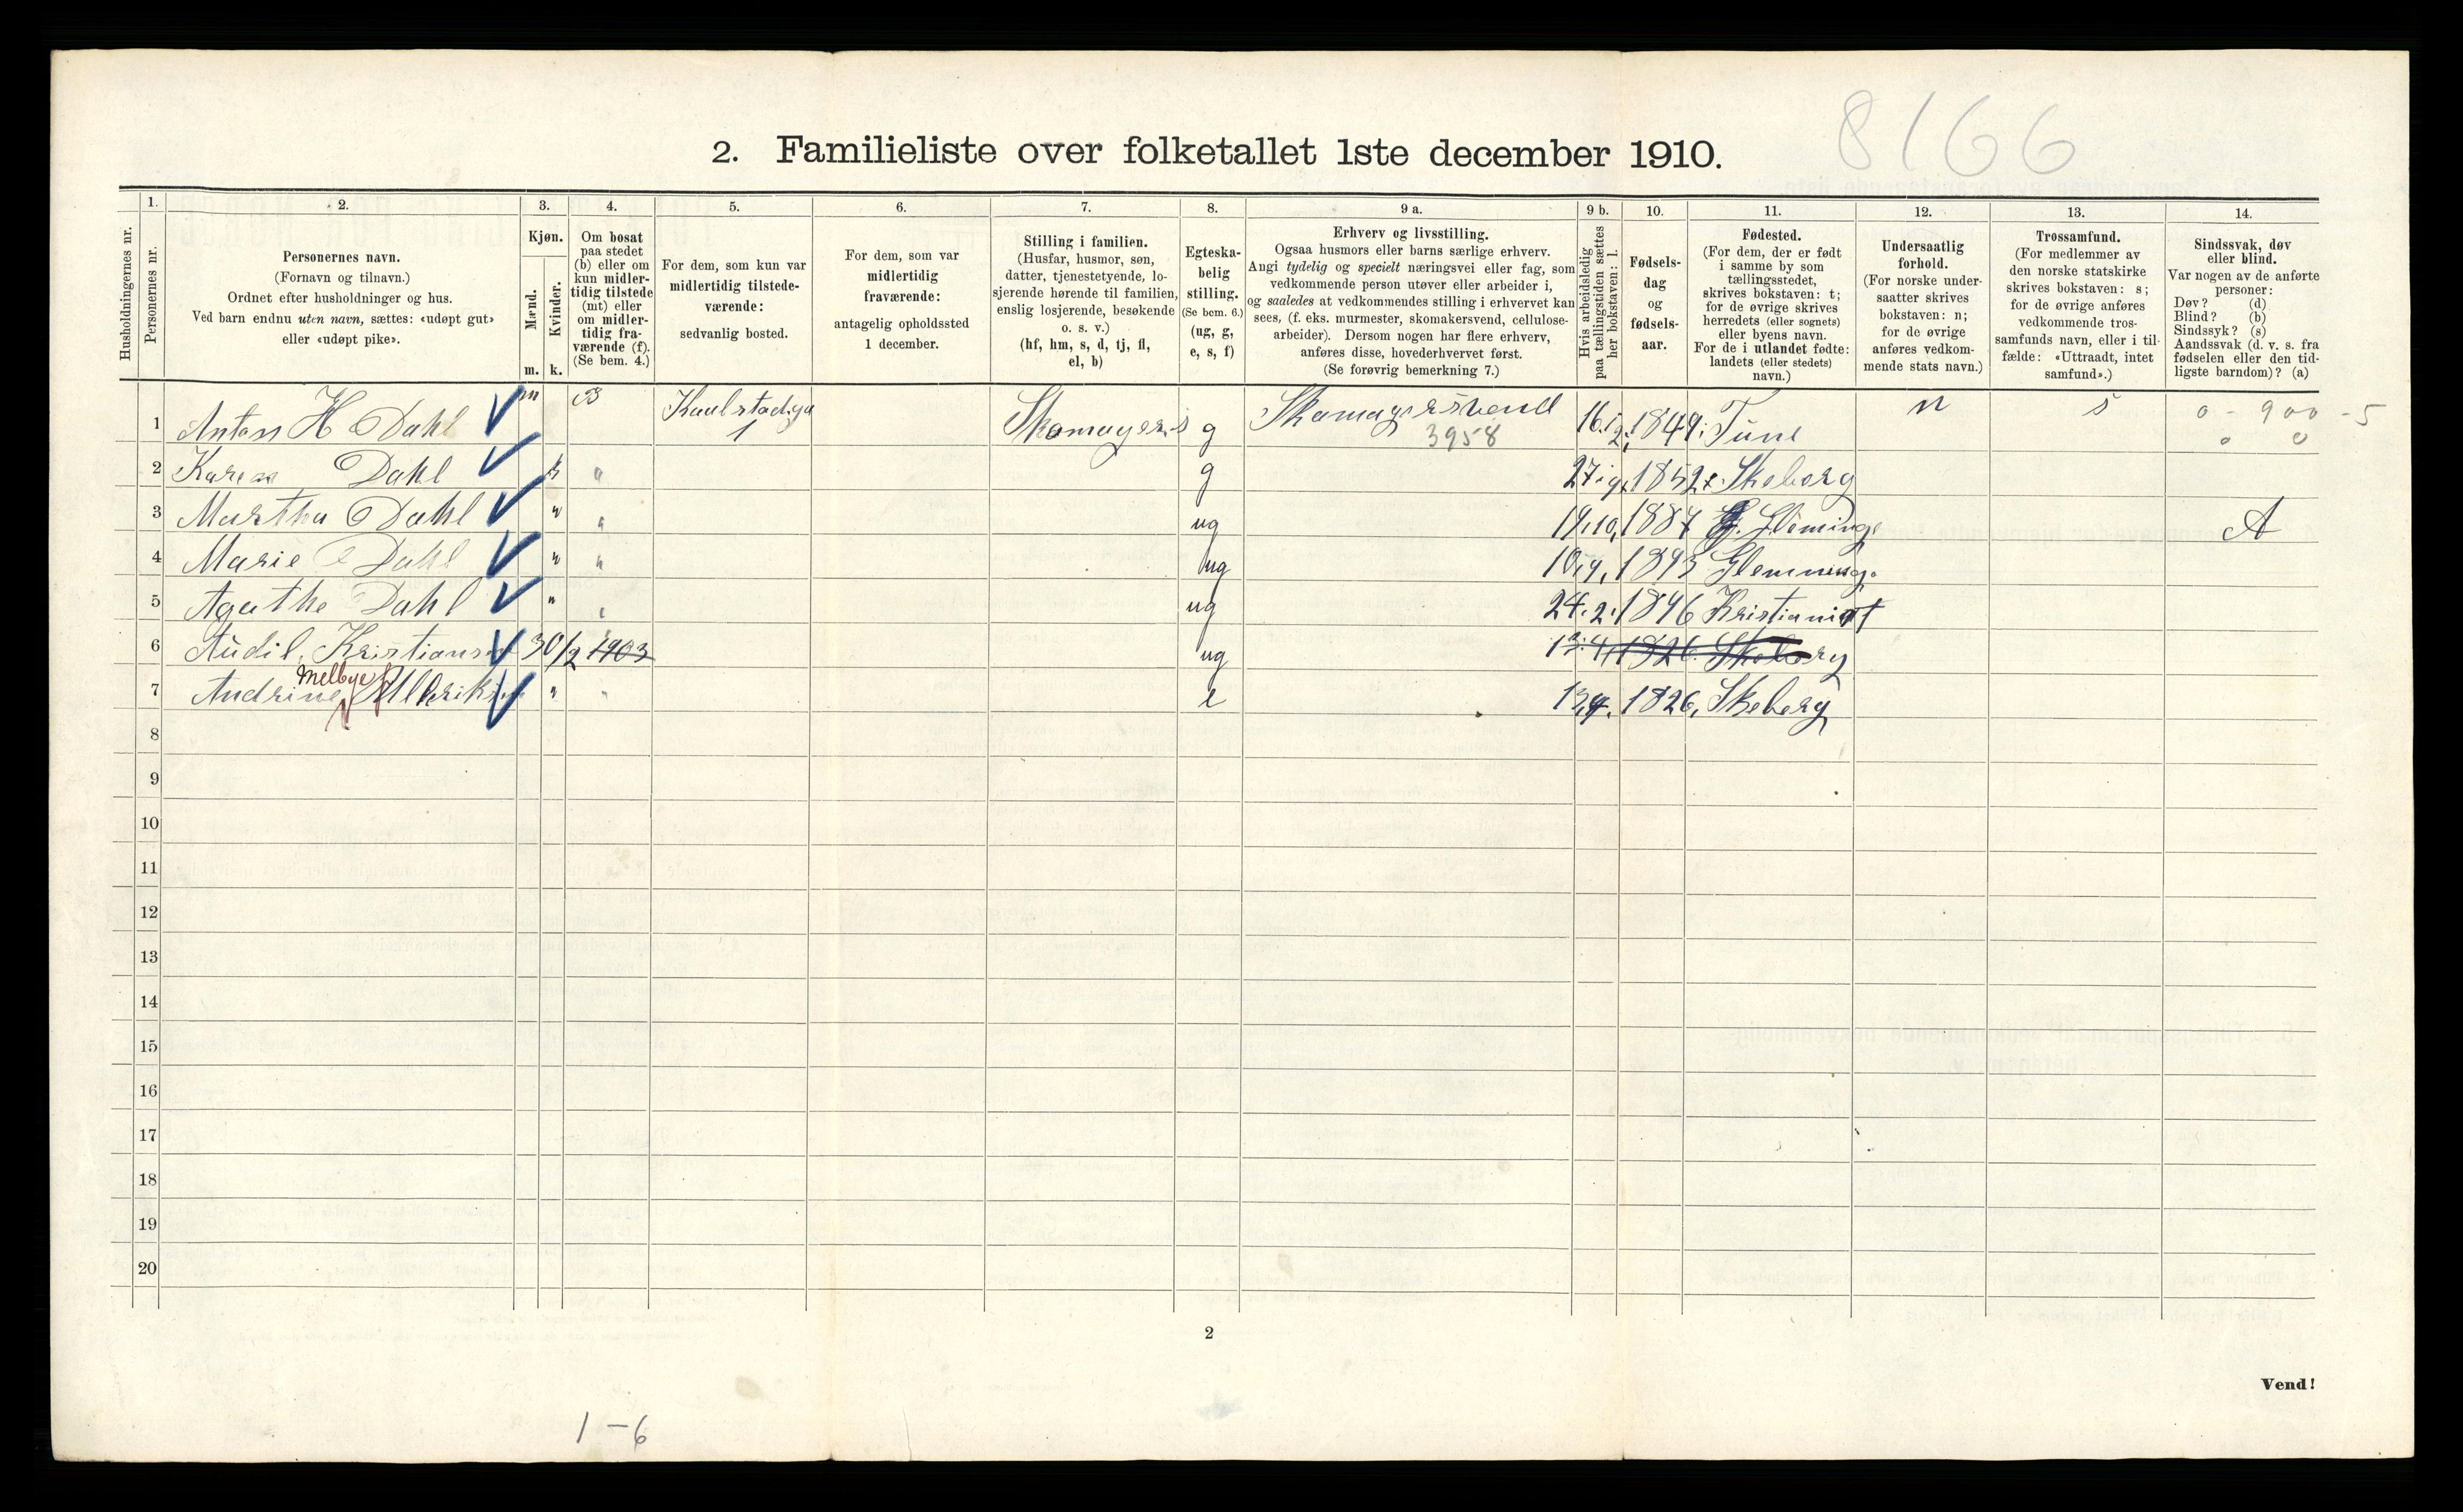 8166
2. Familieliste over folketallet 1ste december 1910.
Husholdningernes nr.
1.
Personernes nr.
2.
Personernes navn.
(Fornavn og tilnavn.)
Ordnet efter husholdninger og hus.
Ved barn endnu uten navn, sættes: «udøpt gut»
eller «udøpt pike».
3.
Kjøn.
Mænd.
Kvinder.
m. k.
4.
Om bosat
paa stedet
(b) eller om
kun midler-
tidig tilstede
(mt) eller
om midler-
tidig fra-
værende (f).
(Se bem. 4.)
5.
For dem, som kun var
midlertidig tilstede-
værende:
sedvanlig bosted.
6.
For dem, som var
midlertidig
fraværende:
antagelig opholdssted
1 december.
7.
Stilling i familien.
(Husfar, husmor, søn,
datter, tjenestetyende, lo-
sjerende hørende til familien,
enslig losjerende, besøkende
o. s. v.)
(hf, hm, s, d, tj, fl,
el, b)
8.
Egteska-
belig
stilling.
(Se bem. 6.)
(ug, g,
e, s, f)
9 a.
Erhverv og livsstilling.
Ogsaa husmors eller barns særlige erhverv.
Angi tydelig og specielt næringsvei eller fag, som
vedkommende person utøver eller arbeider i,
og saaledes at vedkommendes stilling i erhvervet kan
sees, (f. eks. murmester, skomakersvend, cellulose-
arbeider). Dersom nogen har flere erhverv,
anføres disse, hovederhvervet først.
(Se forøvrig bemerkning 7.)
9 b.
Hvis arbeidsledig
paa tællingstiden sættes
her bokstaven: l.
10.
Fødsels-
dag
og
fødsels-
aar.
11.
Fødested.
(For dem, der er født
i samme by som
tællingsstedet,
skrives bokstaven: t;
for de øvrige skrives
herredets (eller sognets)
eller byens navn.
For de i utlandet fødte:
landets (eller stedets)
navn.)
12.
Undersaatlig
forhold.
(For norske under-
saatter skrives
bokstaven: n;
for de øvrige
anføres vedkom-
mende stats navn.)
13.
Trossamfund.
(For medlemmer av
den norske statskirke
skrives bokstaven: s;
for de øvrige anføres
vedkommende tros-
samfunds navn, eller i til-
fælde: «Uttraadt, intet
samfund».)
14.
Sindssvak, døv
eller blind.
Var nogen av de anførte
personer:
Døv? (d)
Blind? (b)
Sindssyk? (s)
Aandssvak (d. v. s. fra
fødselen eller den tid-
ligste barndom)? (a)
1 Anton H Dahl m B 1 g 3958 1849 Tune n s 0 - 900 - 5
0 0
2 Karen Dahl k " g 1852 Skeberg
3 Martha Dahl " " ug 19.10. 1887 Gleminge A
4 Marie Dahl " " ug 1893 Glemminge
5 Agathe Dahl " " ug 24.2. 1896 Kristiania t
6 Audil Kristiansen 30/2 1903 ug 13.4. 1826 Skeberg
Melbye
7 Andrine Ulrikke " " e 13.4. 1826, Skeberg
8
9
10
11
12
13
14
15
16
17
18
19
20
2
Vend!
1 - 6